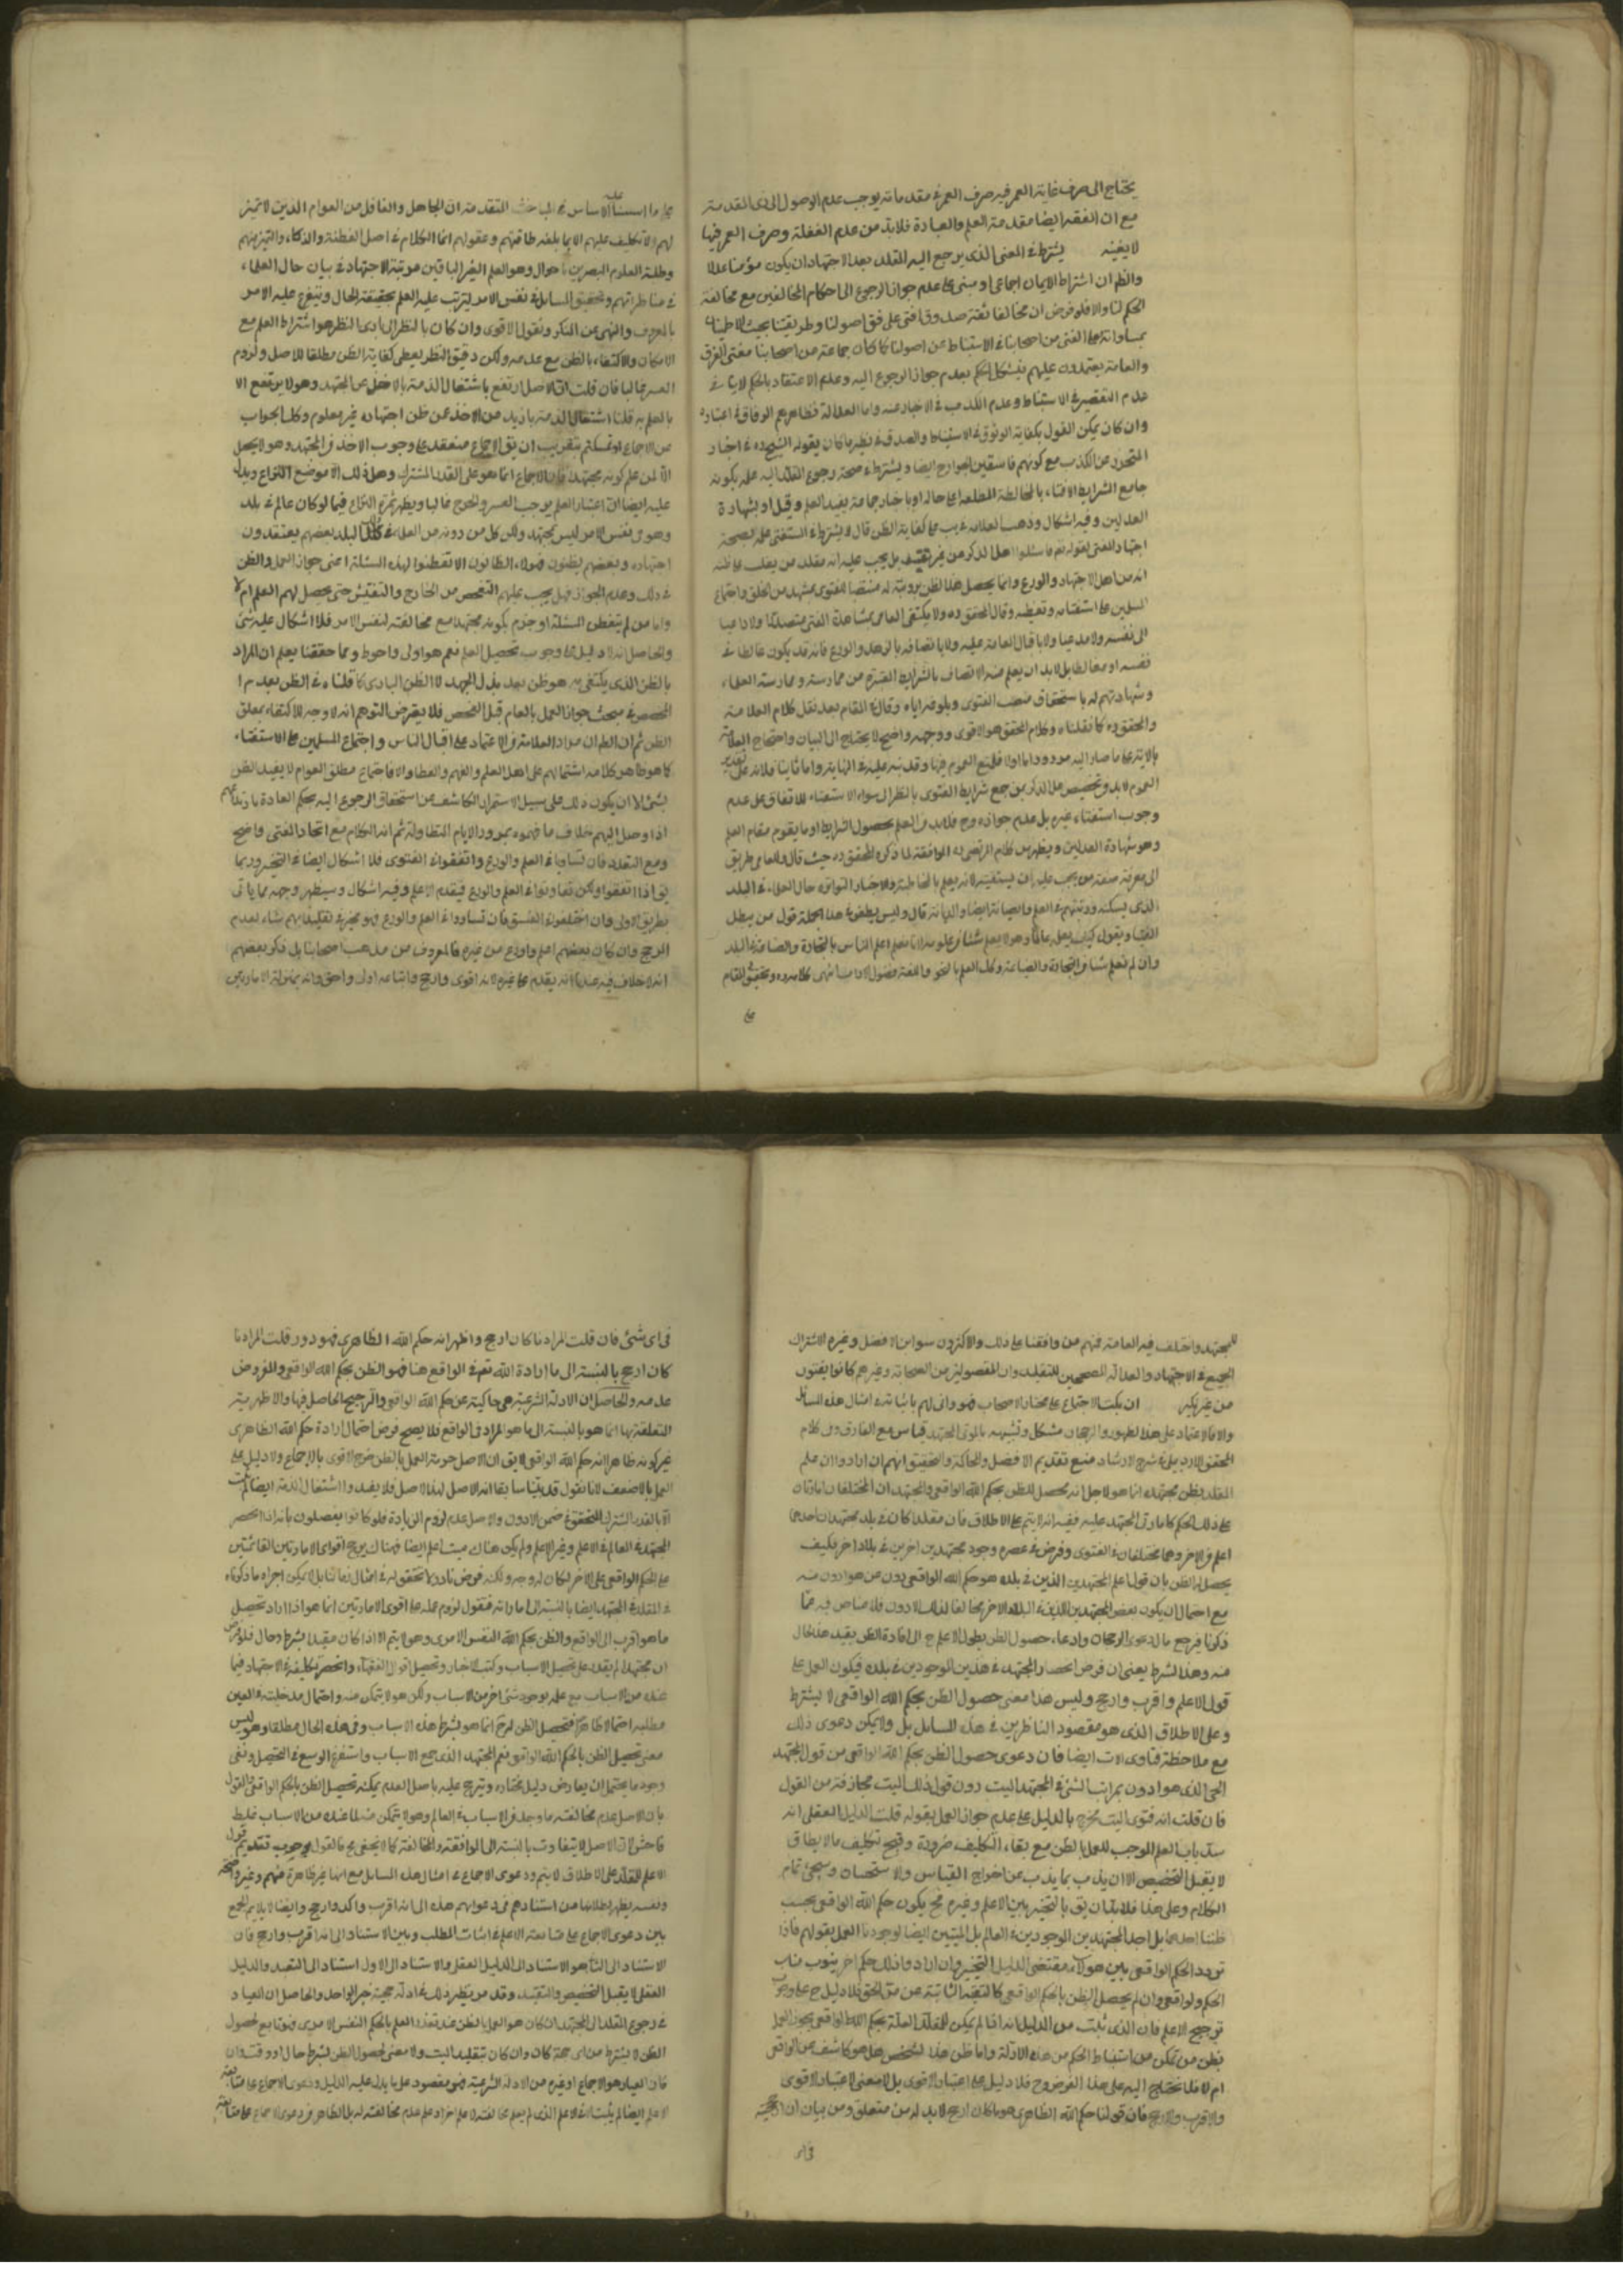 يحتاج الى صرف غاية العمر فيه صرف العمر في مقدماته يوجب عدم الوصول الى ذى المقدمة
مع ان الفقه ايضا مقدمة العلم والعبادة فلابد من عدم الغفلة وصرف العمر فيها
لا يغنيه يشترط في المفتى الذى يرجع اليه المقلد بعد الاجتهاد ان يكون مؤمنا عدلا
والظ ان اشتراط الايمان اجماعى ومبنى على عدم جواز الرجوع الى احكام المخالفين مع مخالفة
الحكم لنا والا فلو فرض ان مخالفا ثقة صدوق افتى على وفق اصولنا وطريقتنا بحيث الاطمينان
بمساواته مع المفتى من اصحابنا في الاستنباط عن اصولنا كما كان جماعة من اصحابنا مفتى الفرق
والعامة يعتمدون عليهم فيشكل الحكم بعدم جواز الرجوع اليه وعدم الاعتقاد بالحكم لا ينافى
عدم التقصير في الاستنباط وعدم الكذب في الاخبار عنه واما العدالة فظاهرهم الوفاق في اعتباره
وان كان يمكن القول بكفاية الوثوق في الاستنباط والصدق في نظير ما كان يقوله الشيخ ره في اخبار
المتحرز عن الكذب مع كونهم فاسقين بالجوارح ايضا ويشترط في صحة رجوع المقلد اليه علمه بكونه
جامع الشرايط الافتاء بالمخالطة المطلعة على حاله او باخبار جماعة يفيد العلم وقيل او بشهادة
العدلين وفيه اشكال وذهب العلامة في يب على كفاية الظن قال لا يشترط في المستفتى علمه بصحة
اجتهاد المفتى لقوله تع فاسئلوا اهل الذكر من غير تقييد بل يجب عليه ان يقلد من يغلب على ظنه
انه من اهل الاجتهاد والورع وانما يحصل هذا الظن برؤيته له منتصبا للفتوى بمشهد من الخلق واجتماع
المسلمين على استفتائه وتعظيمه وقال المحقق ره ولا يكتفى العامى بمشاهدة المفتى متصدرا ولا داعيا
الى نفسه ولا مدعيا ولا باقبال العامة عليه ولا باتصافه بالزهد والورع فانه قد يكون غالطا في
نفسه او مغالطا بل لابد ان يعلم منه الاتصاف بالشرايط المعتبرة من ممارسته وممارسة العلماء
وشهادتهم له باستحقاق منصب الفتوى وبلوغه اياه وقال في المقام بعد نقل كلام العلامة
والمحقق ره كما نقلناه وكلام المحقق هو الاقوى ووجهه واضح لا يحتاج الى البيان واحتجاج العلامة
بالاية على ما صار اليه مردود اما اولا فلمنع العموم فيها وقد نبه عليه في النهاية واما ثانيا فلانه على تقدير
العموم لابد وتخصيص اهل الذكر بمن جمع شرايط الفتوى بالنظر الى سؤال الاستفتاء للاتفاق على عدم
وجوب استفتاء غيره بل عدم جوازه وح فلابد من العلم بحصول الشرايط او ما يقوم مقام العلم
وهو شهادة العدلين ويظهر من كلام المرتضى ره الموافقة لما ذكره المحقق ره حيث قال وللعامى طريق
الى معرفة صفة من يجب عليه ان يستفتيه لانه يعلم بالمخالطة والاخبار المتواترة حال العلماء في البلد
الذى يسكنه ورتبتهم في العلم والصيانة ايضا والديانة قال وليس يطعن في هذا الجملة قول من يبطل
الفتيا ويقول كيف يعلمه عالما وهو لا يعلم شيئا من علومه لانا نعلم اعلم الناس بالتجارة والصياغة في البلد
وان لم نعلم شيئا من التجارة والصياغة وكك العلم بالنحو واللغة وفنون الاداب انتهى كلامه ره وتحقيق المقام
على
على ما اسسنا عليه الاساس في المباحث المتقدمة ان الجاهل والغافل من العوام الذين لا تميز
لهم لا تكليف عليهم الا بما بلغه طاقتهم وعقولهم انما الكلام في اصل الفطنة والذكاء والتميز منهم
وطلبة العلوم البصيرين باحوال وهو العلم الغير البالغين مرتبة الاجتهاد في بيان حال العلماء
في مناظراتهم وتحقيق المسايل في نفس الامر ليترتب عليه العلم بحقيقة الحال ويتفرع عليه الامر
بالمعروف والنهى عن المنكر ونقول الاقوى وان كان بالنظر الى بادى النظر هو اشتراط العلم مع
الامكان والاكتفاء بالظن مع عدمه ولكن دقيق النظر يعطى كفاية الظن مطلقا للاصل ولزوم
العسر غالبا فان قلت ان الاصل ارتفع باشتغال الذمة بالاخذ عن المجتهد وهو لا يرتفع الا
بالعلم به قلنا اشتغال الذمة بازيد من الاخذ عن ظن اجتهاده غير معلوم وكك الجواب
عن الاجماع لو تمسكتم بتقريب ان يق الاجماع منعقد على وجوب الاخذ من المجتهد وهو لا يحصل
الا لمن علم كونه مجتهدا فان الاجماع انما هو على القدر المشترك وهل ذلك الا موضع النزاع ويدل
عليه ايضا ان اعتبار العلم يوجب العسر والحرج غالبا ويظهر ثمرة النزاع فيما لو كان عالم في بلد
وهو في نفس الامر ليس بمجتهد ولكن كل من دونه من العلماء في ذلك البلد بعضهم يعتقدون
اجتهاده وبعضهم يظنون فهؤلاء الظانون الا تفطنوا لهذه المسئلة اعنى جواز العمل بالظن
في ذلك وعدم الجواز فهل يجب عليهم التفحص من الخارج والتفتيش حتى يحصل لهم العلم ام لا
واما من لم يتفطن المسئلة او جزم بكونه مجتهدا مع مخالفته لنفس الامر فلا اشكال عليه شئ
والحاصل انه لا دليل على وجوب تحصيل العلم نعم هو اولى واحوط ومما حققنا يعلم ان المراد
بالظن الذى يكتفى به هو ظن بعد بذل الجهد لا الظن البادى كما قلناه في الظن بعدم ا
لمخصص في مبحث جواز العمل بالعام قبل الفحص فلا يعترض المتوهم انه لا وجه للاكتفاء بمطلق
الظن ثم ان الظ ان مراد العلامة من الاعتماد على اقبال الناس واجتماع المسلمين على الاستفتاء
كما هو ظاهر كلامه اشتمالهم على اهل العلم والفهم والفطا والا فاجتماع مطلق العوام لا يفيد الظن
بشئ الا ان يكون ذلك على سبيل الاستمرار الكاشف عن استحقاق الرجوع اليه بحكم العادة
اذا وصل اليهم خلاف ما فهموه بمرور الايام المتطاولة ثم ان الكلام مع اتحاد المفتى واضح
ومع التعدد فان تساويا في العلم والورع واتفقوا في الفتوى فلا اشكال ايضا في التخيير وربما
يق اذا اتفقوا ولكن تفاوتوا في العلم والورع فيقدم الاعلم وفيه اشكال وسيظهر وجهه مما ياتى
بطريق الاولى وان اختلفوا في الفتوى فان تساووا في العلم والورع فهو مخير في تقليد ايهم شاء لعدم
المرجح وان كان بعضهم اعلم واورع من غيره فالمعروف من مذهب اصحابنا بل ذكر بعضهم
انه لا خلاف فيه عندنا انه يقدم على غيره لانه اقوى وارجح واتباعه اولى واحق وانه بمنزلة الامارتين
للمجتهد واختلف فيه العامة فمنهم من وافقنا على ذلك والاكثرون سووا بين الافضل وغيره لاشتراك
الجميع في الاجتهاد والعدالة المصححين للتقليد وان المفضولين من الصحابة وغيرهم كانوا يفتون
من غير نكير ان يكتب الاجتماع على مختار الاصحاب فهو وانى لهم باثباته في امثال هذه المسائل
والا فالاعتماد على هذا الظهور والرجحان مشكل وتشبيهه بالمولى المجتهد قياس مع الفارق وفى كلام
المحقق الاردبيلى في شرح الارشاد منع تقديم الافضل والمحاكمة والتحقيق انهم ان ارادوا ان علم
المقلد بظن مجتهده انما هو لاجل انه محصل للظن بحكم الله الواقعى والمجتهدان المختلفان امارتان
على ذلك الحكم كامارتى المجتهد عليه ففيه انه لا يتم على الاطلاق فان مقلدا كان في بلد مجتهدان احدهما
اعلم من الاخر وهما مختلفان في الفتوى وفرض في عصره وجود مجتهدين اخرين في بلاد اخر فكيف
يحصل له الظن بان قول اعلم المجتهدين الذين في بلده هو حكم الله الواقعى دون من هو ادون منه
مع احتمال ان يكون بعض المجتهدين الذين في البلاد الاخر مخالفا لذلك الادون فلا مناص فيه عما
ذكرنا فيرجع مال دعوى الرجحان وادعاء حصول الظن بقول الاعلم ح الى افادة الظن بقيد هذا الحال
منه وهذا الشرط يعنى ان فرض انحصار المجتهد في هذين الموجودين في بلده فيكون العمل على
قول الاعلم واقرب وارجح وليس هذا معنى حصول الظن بحكم الله الواقعى لا بشرط
وعلى الاطلاق الذى هو مقصود الناظرين في هذه المسايل بل ولا يمكن دعوى ذلك
مع ملاحظة فتاوى الاموات ايضا فان دعوى حصول الظن بحكم الله الواقعى من قول المجتهد
الحى الذى هو ادون بمراتب شتى من المجتهد الميت دون قول ذلك الميت مجازفة من القول
فان قلت انه فتوى الميت مخرج بالدليل على عدم جواز العمل بقوله قلت الدليل العقلى انه
سد باب العلم الموجب للعمل بالظن مع بقاء التكليف ضرورة وقبح تكليف ما لا يطاق
لا يقبل التخصيص الا ان يذب بما يذب عن اخراج القياس والاستحسان وسيجئ تمام
الكلام وعلى هذا فلابد ان يق بالتخيير بين الاعلم وغيره مح يكون حكم الله الواقعى بحسب
ظننا احدهما بل احد المجتهدين الموجودين في العالم بل الميتين ايضا لوجودنا العمل بقولهم فاذا
تردد الحكم الواقعى بين هؤلاء مقتضى الدليل التخيير وان ارادوا ذلك حكم اخر ينوب مناب
الحكم الواقعى وان لم يحصل الظن بالحكم الواقعى كالتقية النائبة عن متن الحق فلا دليل ح على وجوب
ترجيح الاعلم فان الذى ثبت من الدليل انه اذا لم يكن للمقلد العلم بحكم الله الواقعى يجوز العمل
بظن من تمكن من استنباط الحكم من هذه الادلة واما ظن هذا الشخص هل هو كاشف عن الواقعى
ام لا فلا نحتاج اليه على هذا الفرض وح فلا دليل على اعتبار الاقوى بل لا معنى لاعتبار الاقوى
والاقرب والارجح فان قولنا حكم الله الظاهرى هو ما كان ارجح لابد له من متعلق ومن بيان ان ارجحيته
فى اى
فى اى شئ فان قلت المراد ما كان ارجح واظهر انه حكم الله الظاهرى فهو دور قلت المراد ما
كان ارجح بالنسبة الى ما اراده الله تع في الواقع هنا فهو الظن بحكم الله الواقعى والمفروض
عدمه والحاصل ان الادلة الشرعية هى حاكية عن حكم الله الواقعى والترجيح الحاصل فيها والاظهرية
المتعلقة بها انما هو بالنسبة الى ما هو المراد في الواقع فلا يصح فرض احتمال ارادة حكم الله الظاهرى
غير كونه ظاهرا انه حكم الله الواقعى لا يق ان الاصل حرمة العمل بالظن خرج الاقوى بالاجماع ولا دليل على
العمل بالاضعف لانا نقول قد بينا سابقا انه لا اصل لهذا الاصل فلا يفيد واشتغال الذمة ايضا لم يثبت
الا بالقدر المشترك المتحقق في ضمن الادون والاصل عدم لزوم الزيادة فلو كانوا يفصلون بانه اذا انحصر
المجتهد في العالم في الاعلم وغير الاعلم ولم يكن هناك ميت اعلم ايضا فهناك يرجح اقوى الامارتين القائمتين
على الحكم الواقعى على الاخر لكان له وجه ولكنه فرض نادر لم يتحقق له في امثال زماننا بل لا يمكن اجراء ما ذكرناه
في المقلد في المجتهد ايضا بالنسبة الى اماراته فنقول لزوم عمله على اقوى الامارتين انما هو اذا اراد تحصيل
ما هو اقرب الى الواقع والظن بحكم الله النفس الامرى وهو لا يتم الا اذا كان مقيدا بشرط وحال فلو فرض
ان مجتهدا لم يقدر على تحصيل الاسباب وكتب الاخبار وتحصيل اقوال الفقهاء وانحصر تكليفه في الاجتهاد فيما
عنده من الاسباب مع علمه بوجود شئ اخر من الاسباب ولكن هو لا يتمكن منه واحتمال مدخليته في العين
مطلبه احتمالا ظاهرا فتحصيل الظن له ح انما هو بشرط هذه الاسباب وفى هذه الحال مطلقا وهو ليس
معنى تحصيل الظن بالحكم الله الواقعى نعم المجتهد الذى جمع الاسباب واستفرغ الوسع في التحصيل ونفى
وجود ما يحتمل ان يعارض دليل مختاره ويترجح عليه باصل العدم يمكنه تحصيل الظن بالحكم الواقعى والقول
بان الاصل عدم مخالفته ما وجد من الاسباب في العالم وهو لا يتمكن منه لما عنده من الاسباب غلط
فاحش لان الاصل لا يتفاوت بالنسبة الى الموافقة والمخالفة كما لا يخفى مح فالقول بوجوب تقديم قول
الاعلم للمقلد على الاطلاق لا يتم ودعوى الاجماع في امثال هذه المسايل مع انها غير ظاهرة منهم وغير واضحة
ونفسه يظهر بطلانها من استنادهم في دعواهم هذه الى انه اقرب واكد وارجح وايضا لا يلايم الجمع
بين دعوى الاجماع على متابعة الاعلم في اثبات المطلب وبين الاستناد الى انه اقرب وارجح فان
الاستناد الى الثانى هو الاستناد الى الدليل العقلى والاستناد الى الاول استناد الى التعبد والدليل
العقلى لا يقبل التخصيص والتقييد وقد مر نظير ذلك في ادلة حجية خبر الواحد والحاصل ان العبرة
في رجوع المقلد الى المجتهد ان كان هو العمل بالظن عند تعذر العلم بالحكم النفس الامرى فهو تابع لحصول
الظن لا بشرط من اى جهة كان وان كان بتقليد الميت ولا معنى لحصول الظن بشرط حال او وقت وان
كان المعيار هو الاجماع او غيره من الادلة الشرعية فهو مقصود على ما يدل عليه الدليل ودعوى الاجماع على متابعة
الاعلم ايضا لم يثبت